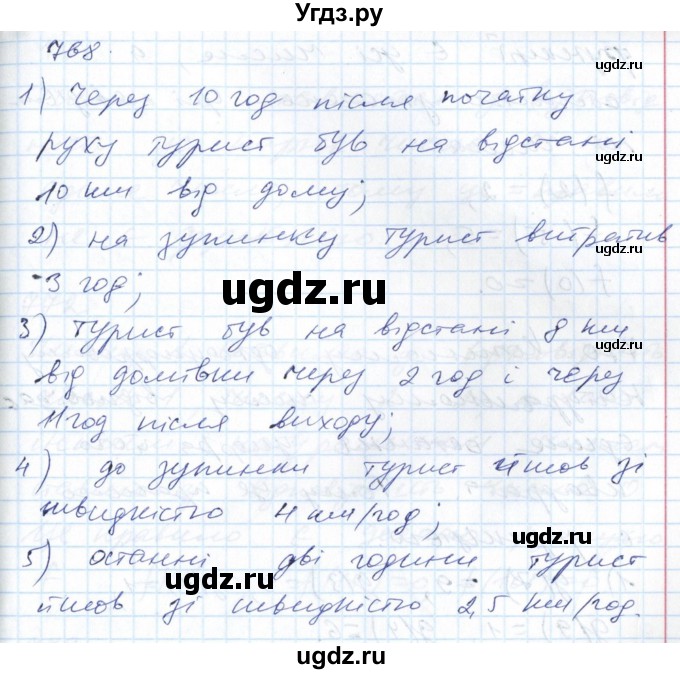 Угдз.ру
768.
1) Через 10 год після початку
руху турист був на відстані
10 км від дому;
2) на зупинку турист витратив
3 год;
ugdz.ru
3) турист був на відстані 8 км
від домівки через 2 год і через
11 год після виходу;
4) до зупинки турист йшов зі
швидкістю 4 км/год;
5) останні дві години турист
йшов зі швидкістю 2,5 км/год.
ugdz.ru